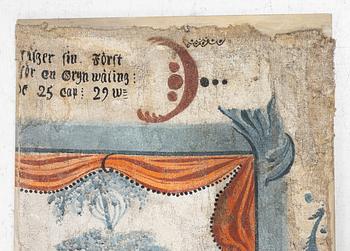 fin. Först
för en Gryn wäling:
25 cap: 29 w=